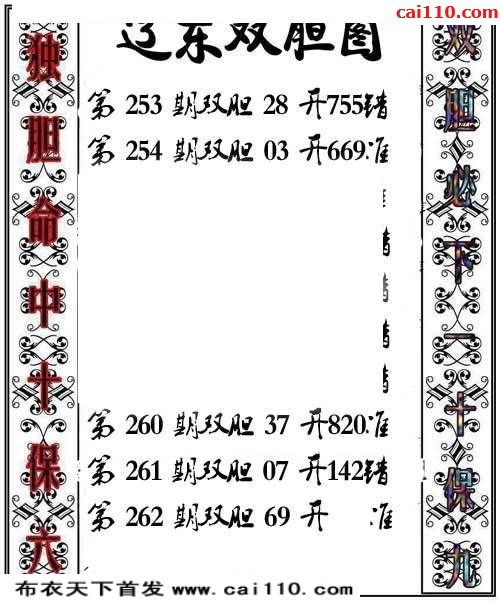 cai110.com
辽东双胆图
独胆命中十保六
第 253 期双胆 28 开755错
第 254 期双胆 03 开669准
第 260 期双胆 37 开820准
第 261 期双胆 07 开142错
第 262 期双胆 69 开 准
双胆必下一十保九
布衣天下首发 www.cai110.com